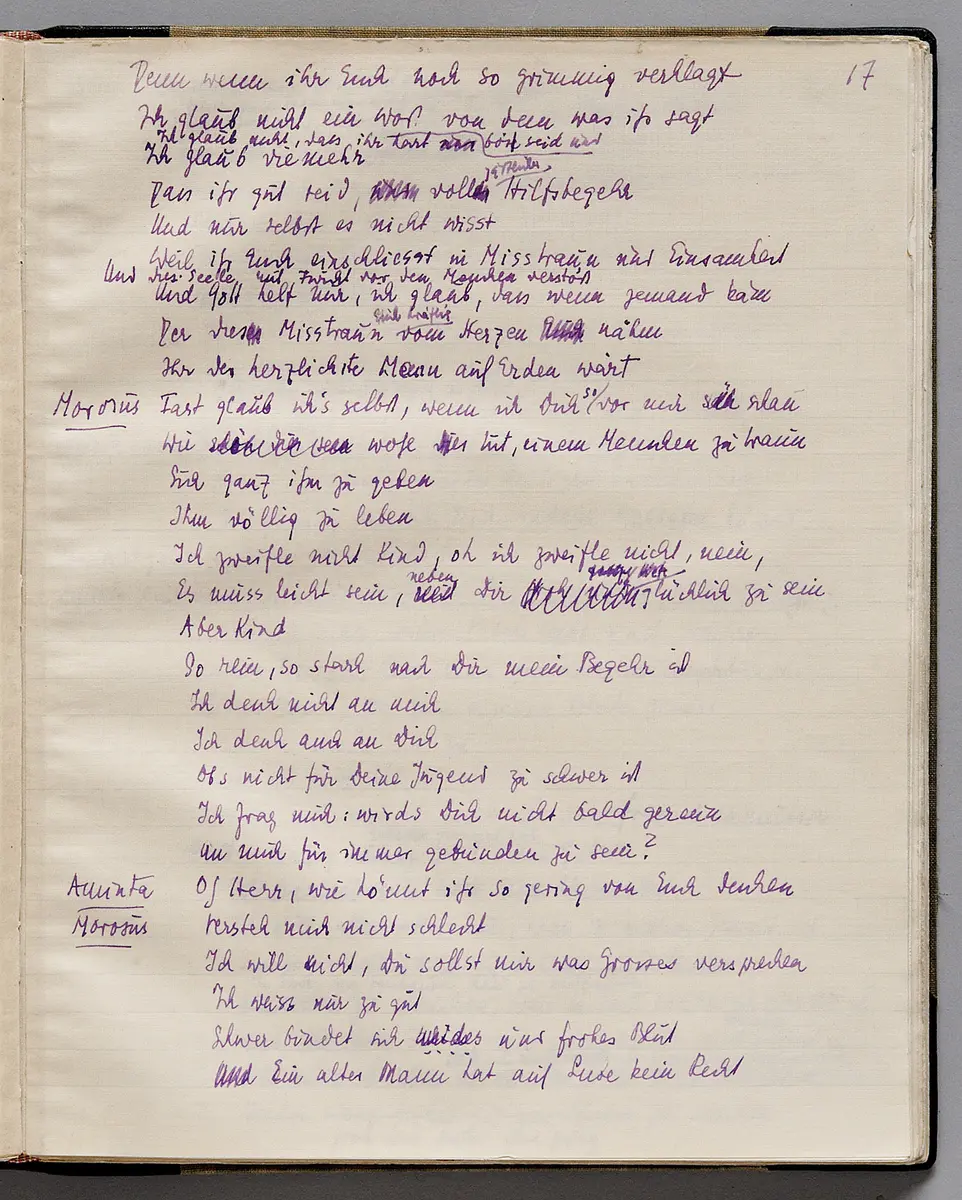 17
Denn wenn ihr Euch noch so grimmig verklagt
Ich glaub nicht ein Wort von dem was ihr sagt
Ich glaub nicht, dass ihr hart und bös seid und
Ich glaub vielmehr
zärtlicher
Dass ihr gut seid, voll Hilfsbegehr
Und nur selbst es nicht wisst
Weil ihr Euch einschliesst in Misstraun und Einsamkeit
Und die Seele mit Furcht vor den Menschen verstört
Und Gott helf mir, ich glaub, dass wenn jemand käm
Euch kräftig
Der dies Misstraun vom Herzen nähm
Ihr der herzlichste Mann auf Erden wärt
Morosus Fast glaub ich's selbst, wenn ich Dich so vor mir schau
Wie wohl dies tut, einem Menschen zu traun
Sich ganz ihm zu geben
Ihm völlig zu leben
Ich zweifle nicht Kind, oh ich zweifle nicht, nein,
Es muss leicht sein, neben Dir glücklich zu sein
Aber Kind
So rein, so stark nach Dir mein Begehr ist
Ich denk nicht an mich
Ich denk auch an Dich
Obs nicht für Deine Jugend zu schwer ist
Ich frag mich: wirds Dich nicht bald gereun
An mich für immer gebunden zu sein?
Aminta Oh Herr, wie könnt ihr so gering von Euch denken
Morosus Versteh mich nicht schlecht
Ich will nicht, Du sollst mir was Grosses versprechen
Ich weiss nur zu gut
Schwer bindet sich und frohes Blut
Und Ein alter Mann hat auf Liebe kein Recht